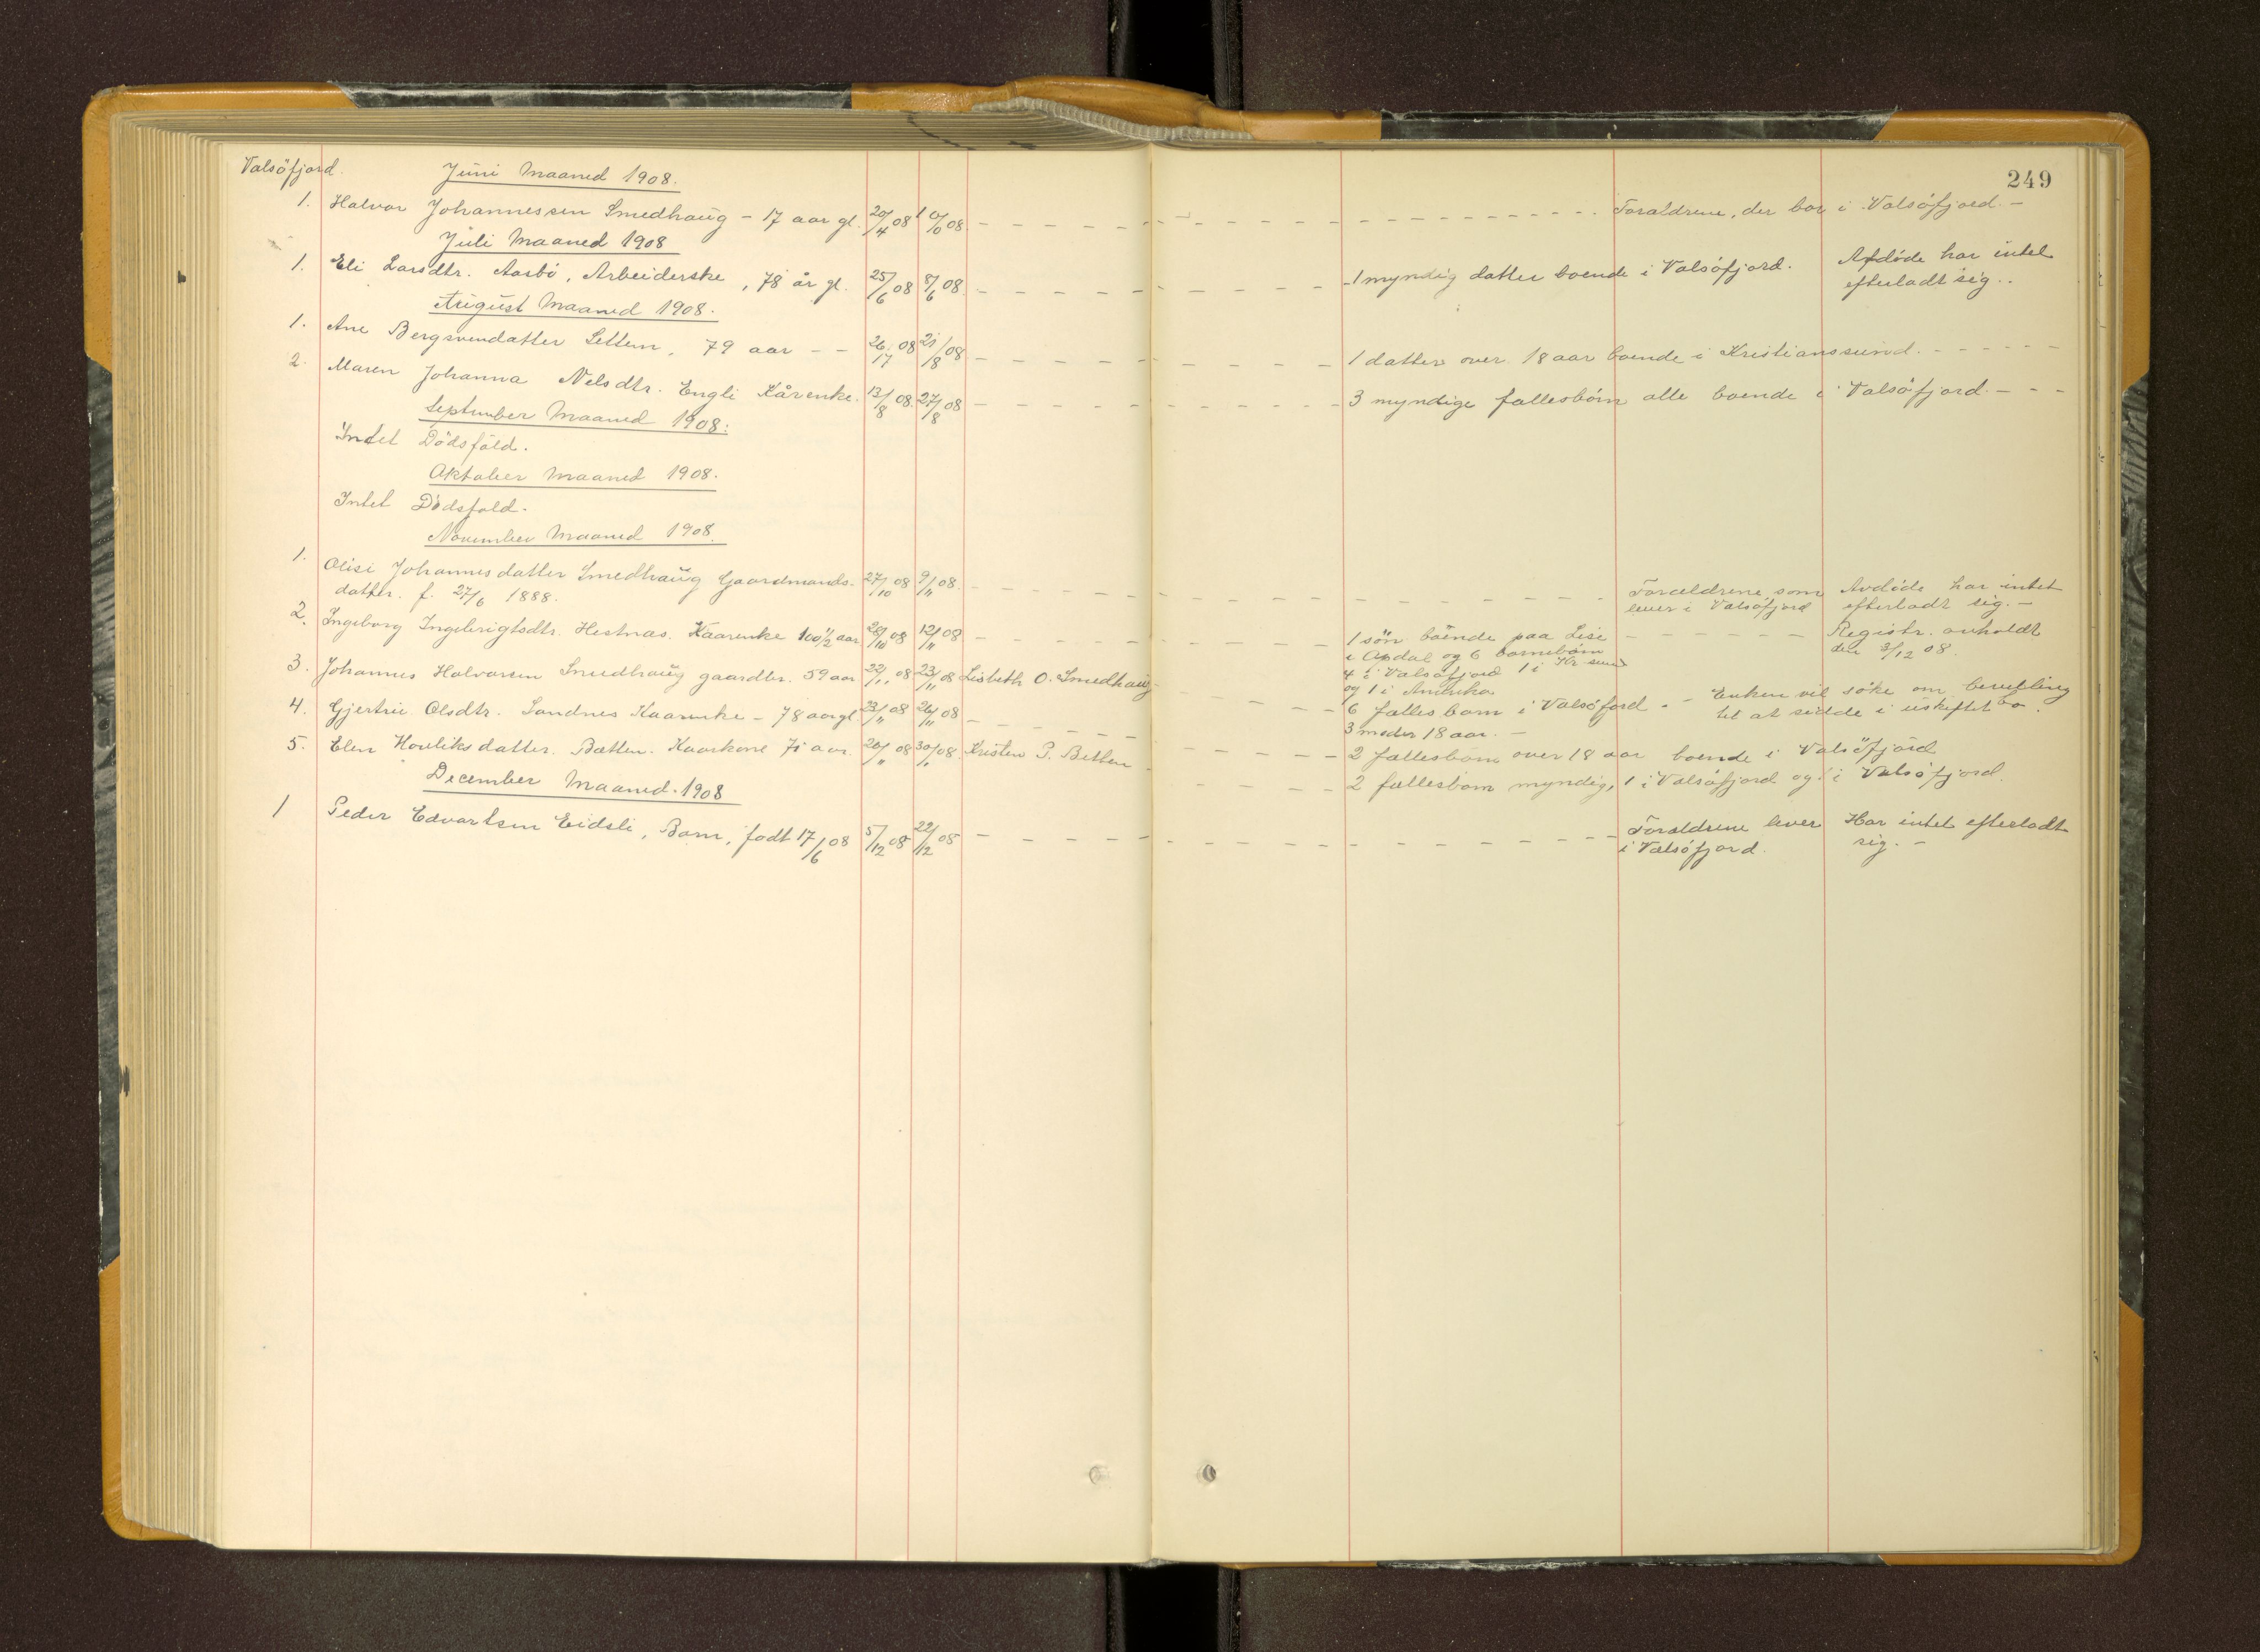 249
Valsöfjord. Juni Maaned 1908.
1. Halvor Johannessen Smedhaug - 17 aar gl. 20/4 08 Forældrene, der bor i Valsöfjord. -
Juli Maaned 1908
1. Eli Larsdtr. Aasbö, Arbeiderske, 78 år gl. 25/6 08 8/6 08 - 1 myndig datter boende i Valsöfjord. Afdöde har intet
efterladt sig..
August Maaned 1908.
1. Ane Bergsvendatter Settem, 79 aar - - 26/17 08 21/8 08 - 1 datter over 18 aar boende i Kristianssund.
2. Maren Johanna Nelsdtr. Engli Kårenke. 13/8 08. 27/8 08 - 3 myndige fællesbörn alle boende i Valsöfjord. - - -
September Maaned 1908:
Intet Dödsfald.
Oktober Maaned 1908.
Intet Dödsfald.
November Maaned 1908.
1. Olise Johannesdatter Smedhaug Gaardmands- 27/10 08 9/11 08. Forældrene som Avdöde har intet
datter. f. 27/6 1888. lever i Valsöfjord efterladt sig. -
2. Ingeborg Ingebrigtsdtr. Hestnæs. Kaarenke 100 1/2 aar 28/10 08 12/11 08 - 1 sön boende paa Lise Registr. avholdt
i Opdal og 6 barnebörn den 3/12 08.
4 i Valsöfjord 1 i Kr sund
og 1 i Amerika
3. Johannes Halvorsen Smedhaug gaardbr. 59 aar 22/11 08 23/11 08 Lisbeth O. Smedhaug - 6 fælles barn i Valsöfjord - - Enken vil söke om bevilling
3 under 18 aar. - til at sidde i uskiftet bo.
4. Gjertrue Olsdtr. Sandnes Kaarenke - 78 aar gl 23/11 08 26/11 08 - 2 fællesbarn over 18 aar boende i Valsöfjord
5. Elen Houliksdatter. Bætten. Kaarkone 71 aar. 20/11 08 30/11 08. Kristen P. Betten - 2 fællesbarn myndig, 1 i Valsöfjord og 1 i Valsöfjord.
December Maaned. 1908
1 Peder Edvartsen Eidsli, Barn, födt 17/6 08 5/12 08 22/12 08 - Forældrene lever Har intet efterladt
i Valsöfjord. sig. -